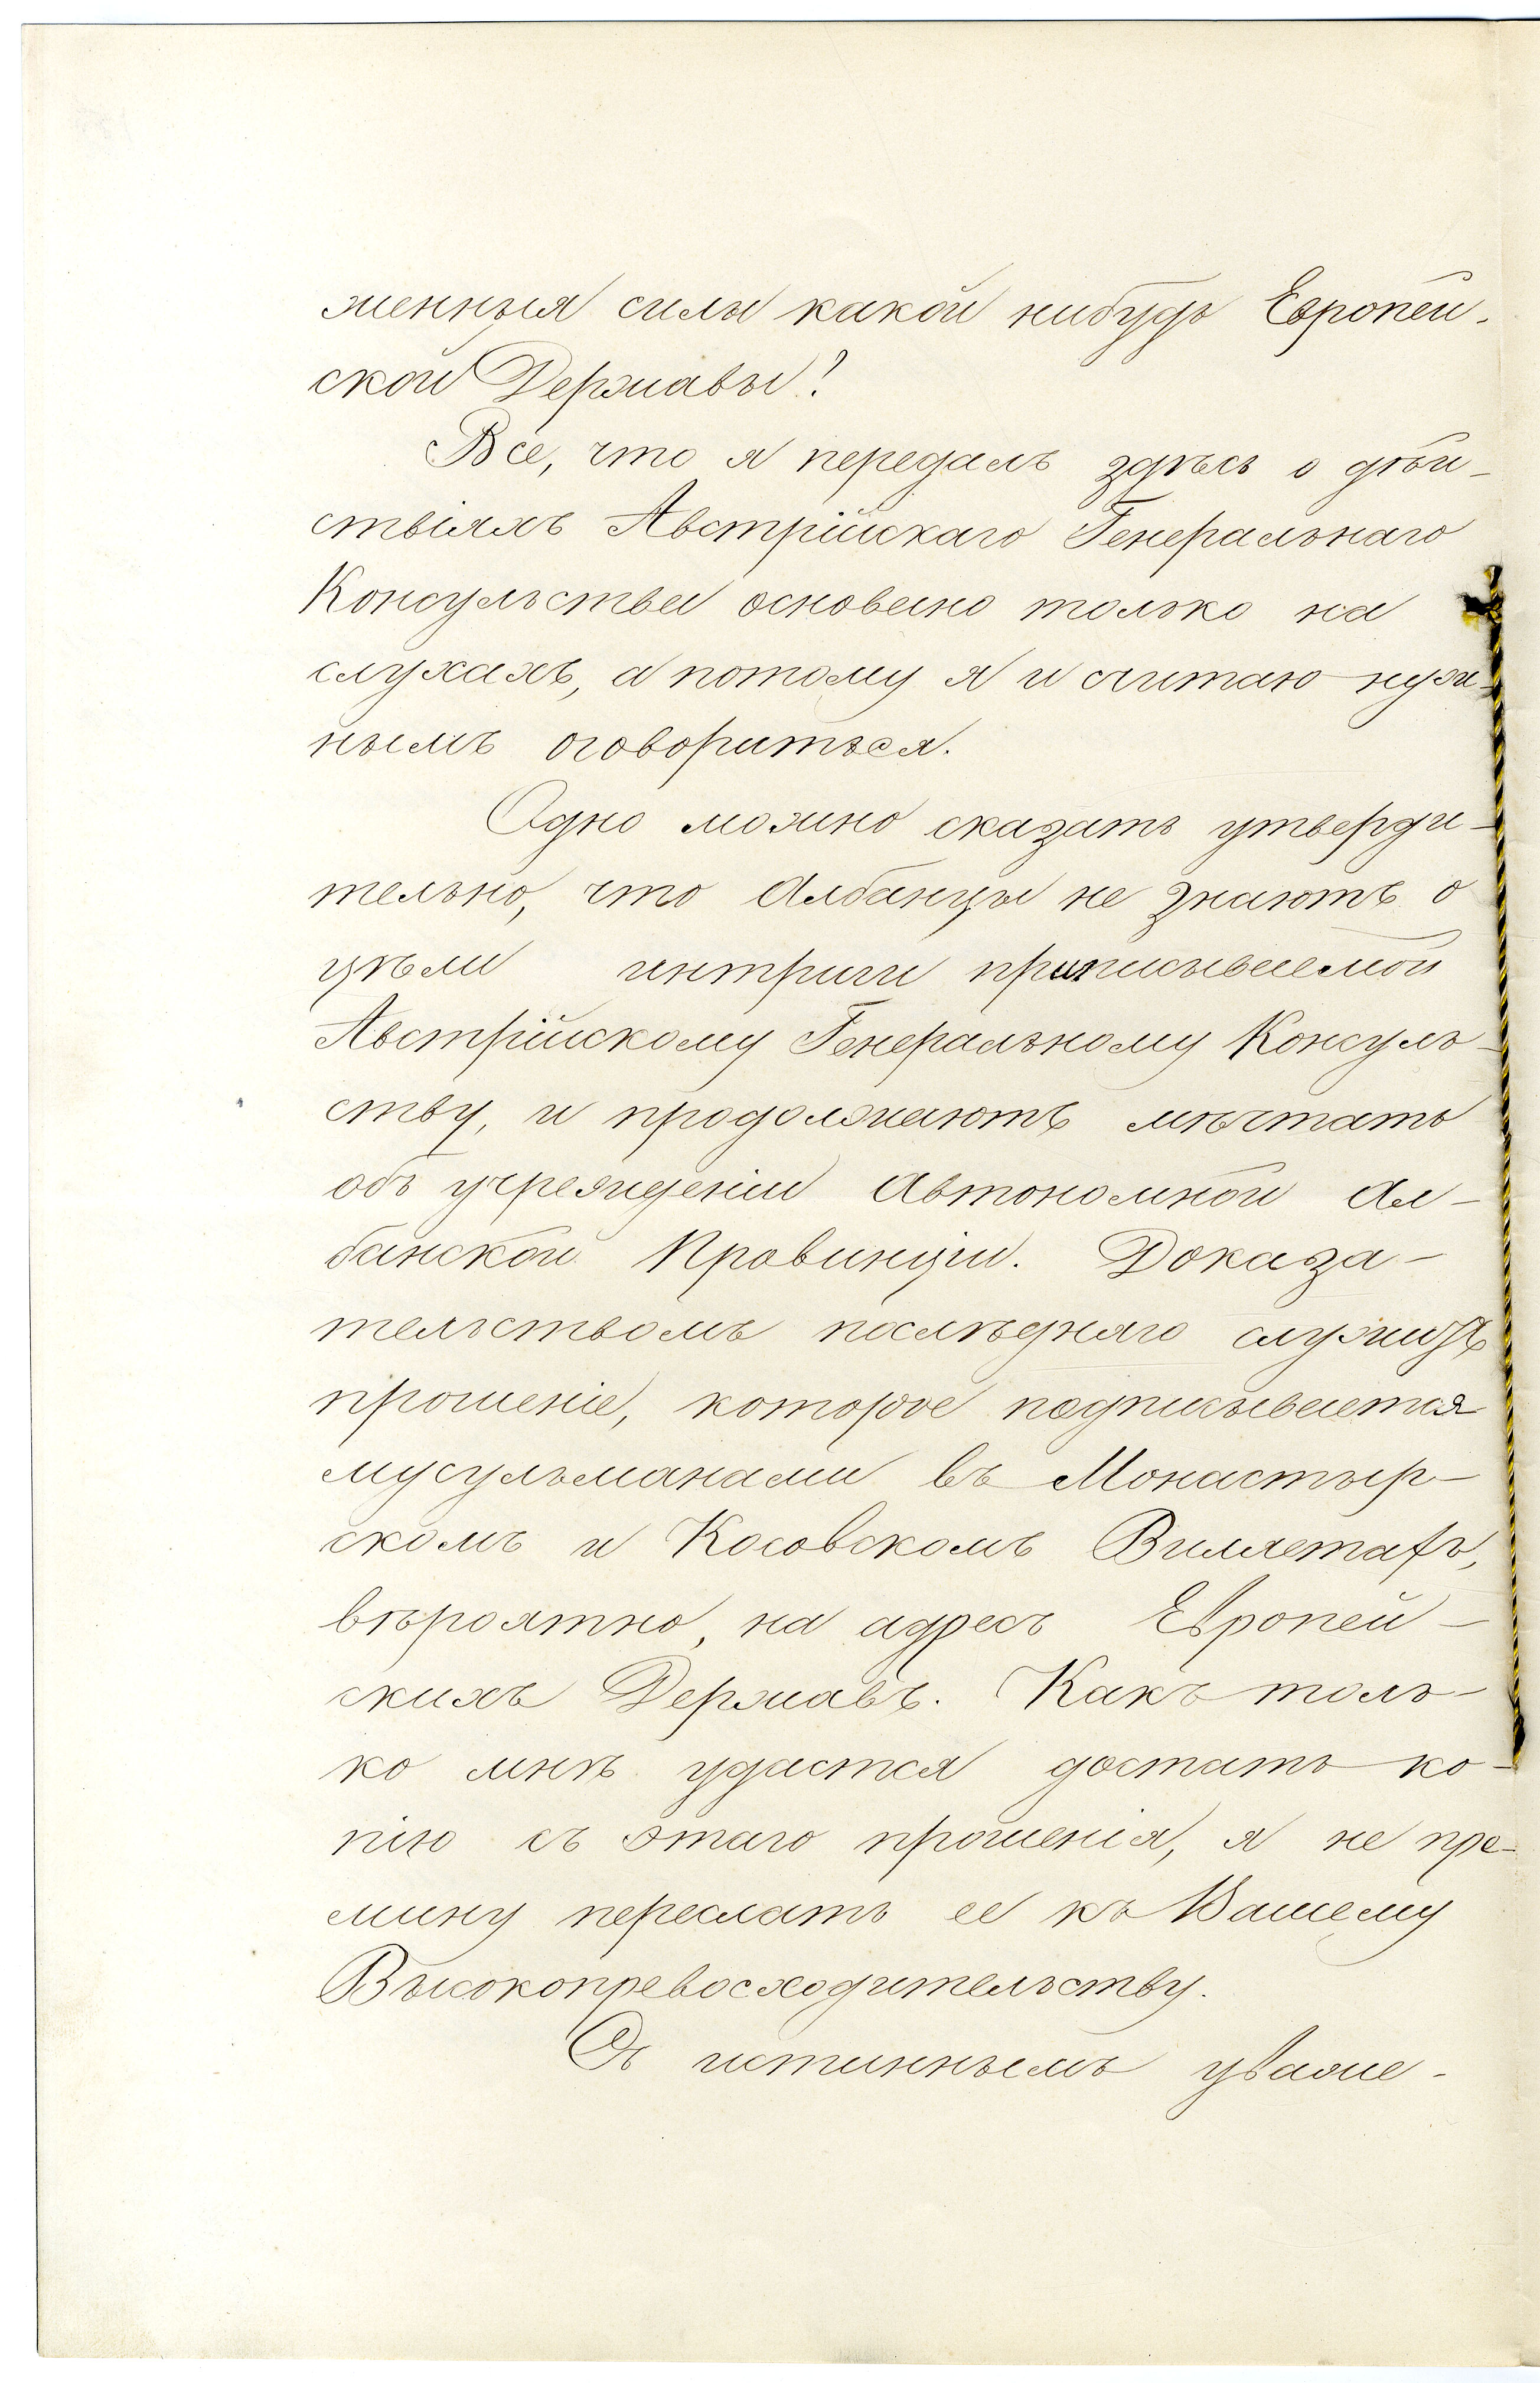 женныя силы какой нибудь Европей-
ской Державы!
Все, что я передалъ здѣсь о дѣй-
ствіяхъ Австрійскаго Генеральнаго
Консульства основано только на
слухахъ, а потому я и считаю нуж-
нымъ оговориться.
Одно можно сказать утверди-
тельно, что Албанцы не знаютъ о
цѣли интриги приписываемой
Австрійскому Генеральному Консуль-
ству, и продолжаютъ мѣчтать
объ учрежденіи Автономной Ал-
банской Провинціи. Доказа-
тельствомъ послѣдняго служитъ
прошеніе, которое подписывается
мусульманами въ Монастыр-
скомъ и Косовскомъ Вилаетахъ,
вѣроятно, на адресъ Европей-
скихъ Державъ. Какъ толь-
ко мнѣ удастся достать ко-
пію съ этаго прошенія, я не пре-
мину переслать ее къ Вашему
Высокопревосходительству.
Съ истиннымъ уваже-